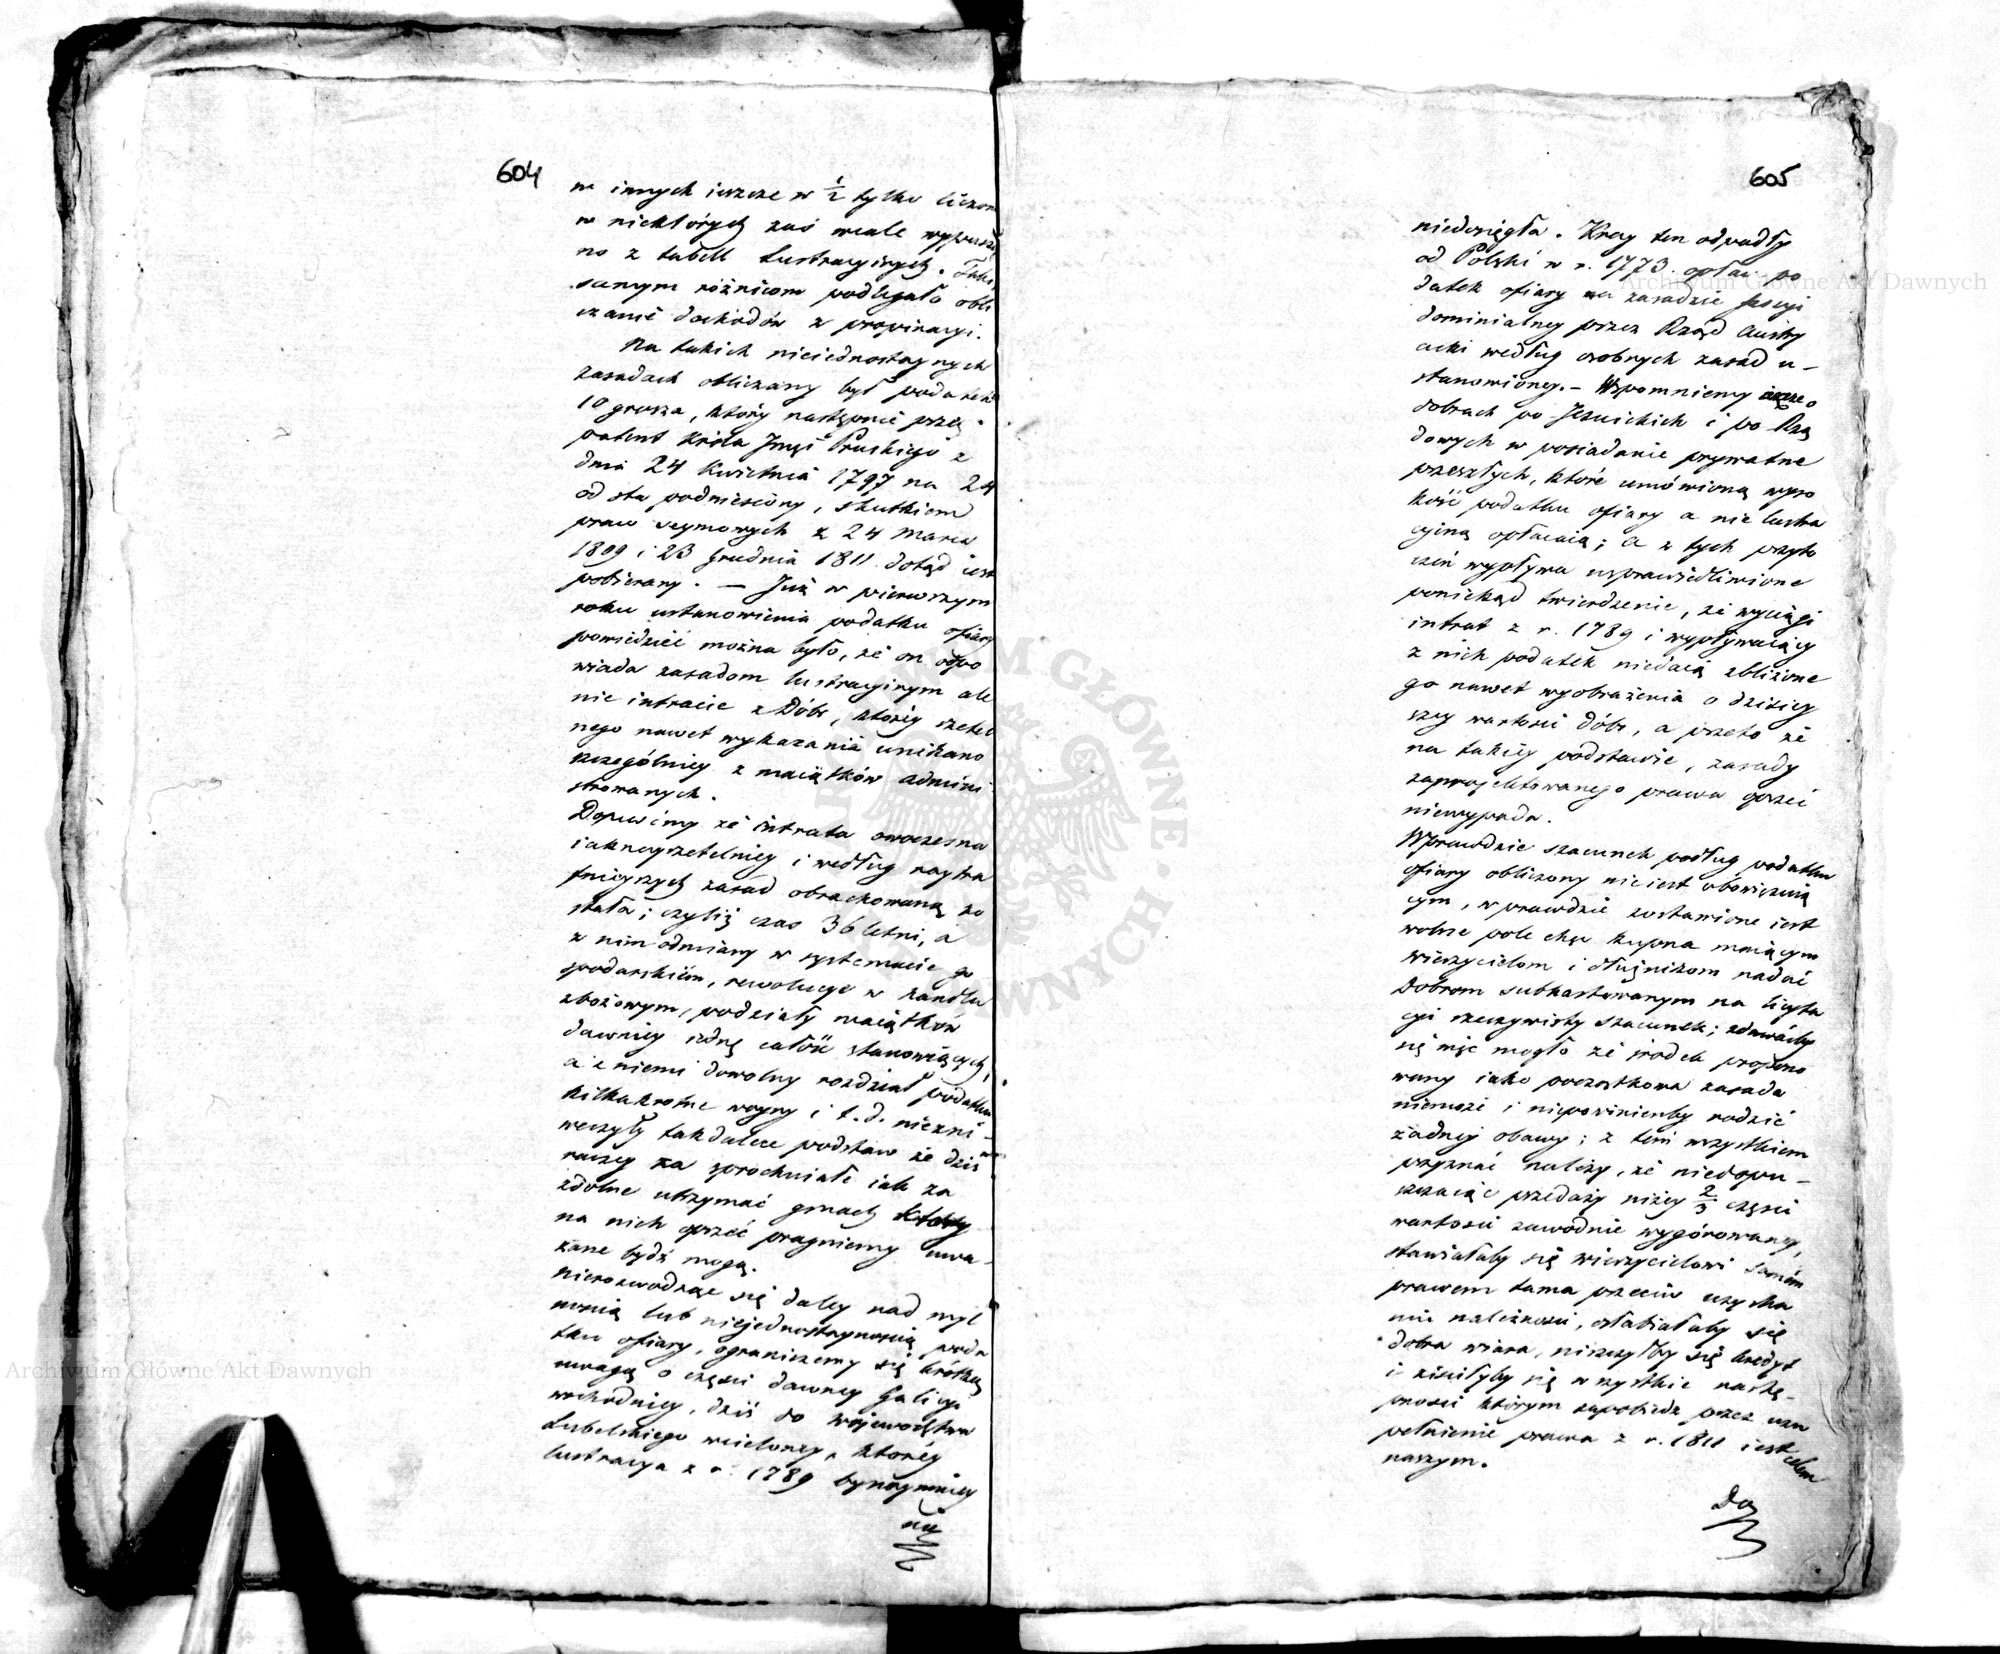 604
w innych ieszcze w 1/2 tylko liczon
w niektórych zaś wcale wypuszczo
no z tabell Lustracyinych. Takim
samym różnicom podlegało obli
czanie dochodów z propinacyi.
Na takich nieiednostaynych
zasadach obliczany był podatek
10 grosza, który następnie przez
patent Króla Jmci Pruskiego z
dnia 24 Kwietnia 1797 na 24
od sta podniesiony, skutkiem
praw seymowych z 24 Marca
1809 i 23 Grudnia 1811 dotąd iest
pobierany. — Już w pierwszym
roku ustanowienia podatku ofiary
powiedzieć można było, że on odpo
wiada zasadom lustracyinym ale
nie intracie z Dóbr, którey rzetel
nego nawet wykazania unikano
szczególniey z maiątków admini
strowanych.
Dopuśćmy że intrata owoczesna
iaknayrzetelniey i według naytra
fnieyszych zasad obrachowaną zo
stała; czyliż czas 36 letni, a
z nim odmiany w systemacie go
spodarskiém, rewolucye w handlu
zbożowym, podziały maiątków
dawniey iednę całość stanowiących,
a z niemi dowolny rozdział podatku
kilkakrotne woyny i t. d. niezni-
weczyły takdalece podstaw że dziś
raczey za sprochniałe iak za
zdolne utrzymać gmach który
na nich oprzeć pragniemy uwa-
żane bydź mogą.
Nierozwodząc się daley nad myl
nością lub niejednostaynością poda
tku ofiary, ograniczemy się krótką
uwagą o części dawney Galicyi
wschodniey, dziś do Województwa
Lubelskiego wcieloney, którey
lustracya z r. 1789 bynaymniey
nie
605
niedosięgła. Kray ten odpadły
od Polski w r. 1773. opłaca po
datek ofiary na zasadzie fassyi
dominialney przez Rząd Austry
acki według osobnych zasad u-
stanowioney. - Wspomniemy ieszcze o
dobrach po-Jezuickich i po Rzą
dowych w posiadanie prywatne
przeszłych, które umówioną wyso
kość podatku ofiary a nie lustra
cyiną opłacaią; a z tych przyto
czeń wypływa usprawiedliwione
poniekąd twierdzenie, że wyciągi
intrat z r. 1789 i wypływaiący
z nich podatek niedaią zbliżone
go nawet wyobrażenia o dzisiey
szey wartości dóbr, a przeto że
na takiey podstawie, zasady
zaprojektowanego prawa oprzeć
niewypada.
Wprawdzie szacunek podług podatku
ofiary obliczony nieiest obowiązuią
cym, wprawdzie zostawione iest
wolne pole chęć kupna maiącym
wierzycielom i dłużnikom nadać
Dobrom subhastowanym na licyta
cyi rzeczywisty szacunek; zdawałby
się więc mogło że środek propono
wany iako początkowa zasada
niemoże i niepowinienby rodzić
żadnej obawy; z tém wszystkiem
przyznać należy, że niedopu-
szczaiąc przedaży niżey 2/3 części
wartości zawodnie wygórowaney,
stawiałaby się wierzycielowi samém
prawem tama przeciw uzyska
niu należności, osłabiałaby się
dobra wiara, niszczyłby się kredyt
i ziściłyby się wszystkie nastę-
pności którym zapobiedz przez uzu
pełnienie prawa z r. 1811 iest celem
naszym.
Do
Archiwum Główne Akt Dawnych
Archiwum Główne Akt Dawnych
ARCHIWUM GŁÓWNE AKT DAWNYCH